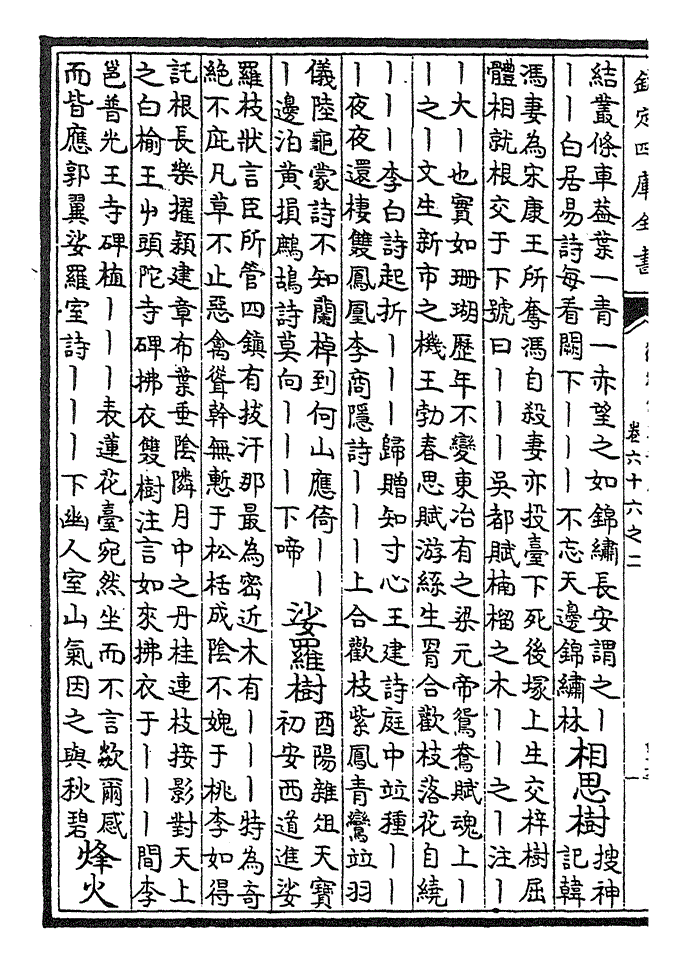 欽定四庫全書
卷六十六之二
結叢條車葢葉一青一赤望之如錦繡長安謂之丨
丨丨白居易詩每看闕下丨丨丨不忘天邊錦繡林
相思樹
搜神
記韓
馮妻為宋康王所奪馮自殺妻亦投臺下死後塚上生交梓樹屈
體相就根交于下號曰丨丨丨吳都賦楠榴之木丨丨之丨注丨
丨大丨也實如珊瑚歷年不變東冶有之梁元帝鴛鴦賦魂上丨
丨之丨文生新市之機王勃春思賦游絲生罥合歡枝落花自繞
丨丨丨李白詩起折丨丨丨歸贈知寸心王建詩庭中竝種丨丨
丨夜夜還棲雙鳳凰李商隱詩丨丨丨上合歡枝紫鳳青鸞竝羽
儀陸龜蒙詩不知蘭棹到何山應倚丨丨
丨邊泊黃損鷓鴣詩莫向丨丨丨下啼
娑羅樹
酉陽雜俎天寶
初安西道進娑
羅枝狀言臣所管四鎮有拔汗那最為密近木有丨丨丨特為奇
絕不庇凡草不止惡禽聳幹無慙于松栝成陰不媿于桃李如得
託根長樂擢穎建章布葉垂陰隣月中之丹桂連枝接影對天上
之白榆王屮頭陀寺碑拂衣雙樹注言如來拂衣于丨丨丨間李
邕普光王寺碑植丨丨丨表蓮花臺宛然坐而不言欻爾感
而皆應郭翼娑羅室詩丨丨丨下幽人室山氣因之與秋碧
烽火